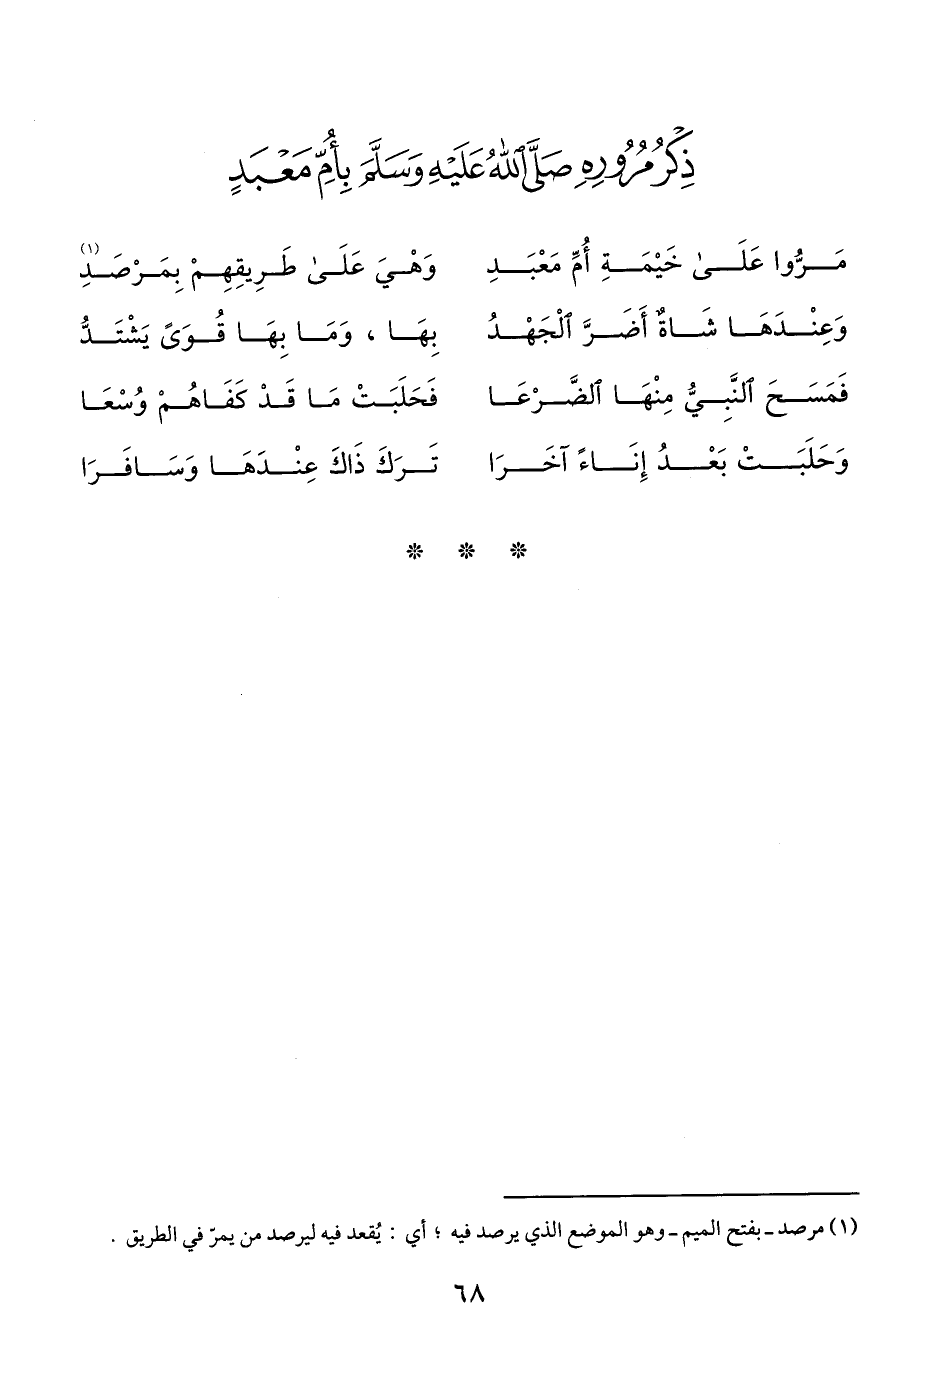 ذِكْرُ مُرُورِهِ صَلَّى اللهُ عَلَيْهِ وَسَلَّمَ بِأُمِّ مَعْبَدٍ
مَرُّوا عَلَىٰ خَيْمَةِ أُمِّ مَعْبَدِ وَهْيَ عَلَىٰ طَرِيقِهِمْ بِمَرْصَدِ (١)
وَعِنْدَهَا شَاةٌ أَضَرَّ ٱلْجَهْدُ بِهَا ، وَمَا بِهَا قُوَىً يَشْتَدُّ
فَمَسَحَ ٱلنَّبِيُّ مِنْهَا ٱلضَّرْعَا فَحَلَبَتْ مَا قَدْ كَفَاهُمْ وُسْعَا
وَحَلَبَتْ بَعْدُ إِنَاءً آخَرَا تَرَكَ ذَاكَ عِنْدَهَا وَسَافَرَا
❊ ❊ ❊
(١) مرصد ـ بفتح الميم ـ وهو الموضع الذي يرصد فيه ؛ أي : يُقعد فيه ليرصد من يمرّ في الطريق .
٦٨